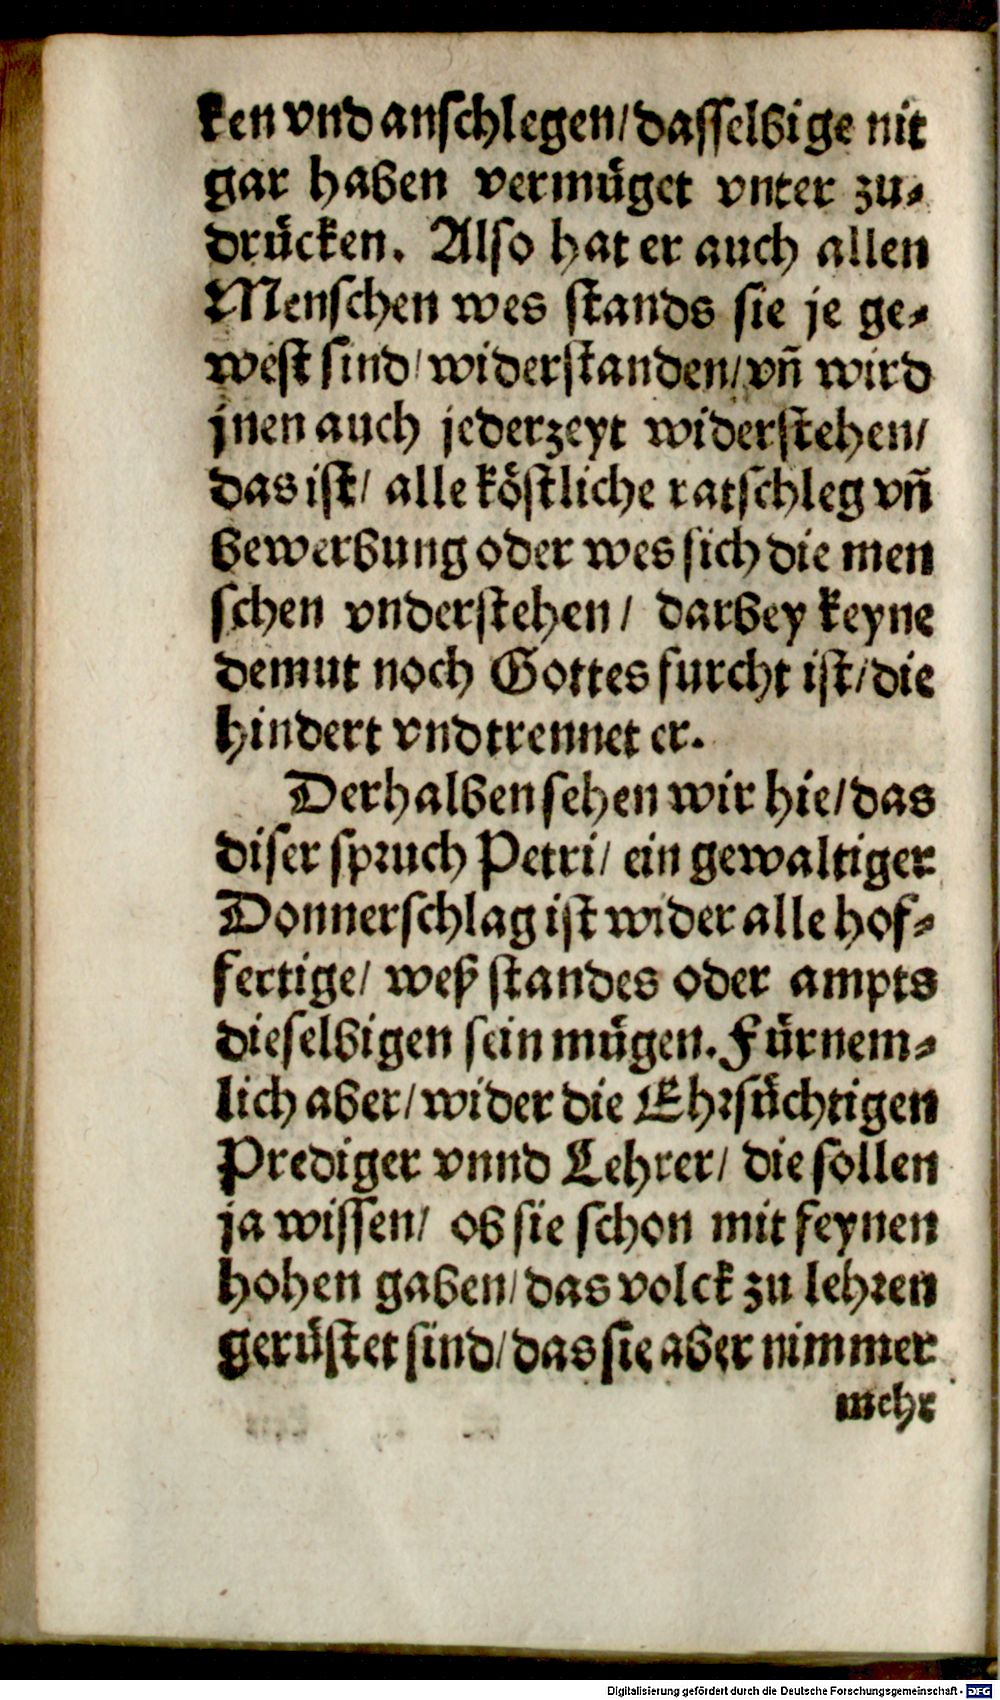 ken vnd anschlegen/ dasselbige nit
gar haben vermüget vnter zu-
drücken. Also hat er auch allen
Menschen wes stands sie je ge-
west sind/ widerstanden/ vñ wird
jnen auch jederzeyt widerstehen/
das ist/ alle köstliche ratschleg vñ
bewerbung oder wes sich die men
schen vnderstehen/ darbey keyne
demut noch Gottes furcht ist/ die
hindert vnd trennet er.
Derhalben sehen wir hie/ das
diser spruch Petri/ ein gewaltiger
Donnerschlag ist wider alle hof-
fertige/ weß standes oder ampts
dieselbigen sein mügen. Fürnem-
lich aber/ wider die Ehrsüchtigen
Prediger vnnd Lehrer/ die sollen
ja wissen/ ob sie schon mit feynen
hohen gaben/ das volck zu lehren
gerüstet sind/ das sie aber nimmer
mehr
Digitalisierung gefördert durch die Deutsche Forschungsgemeinschaft - DFG